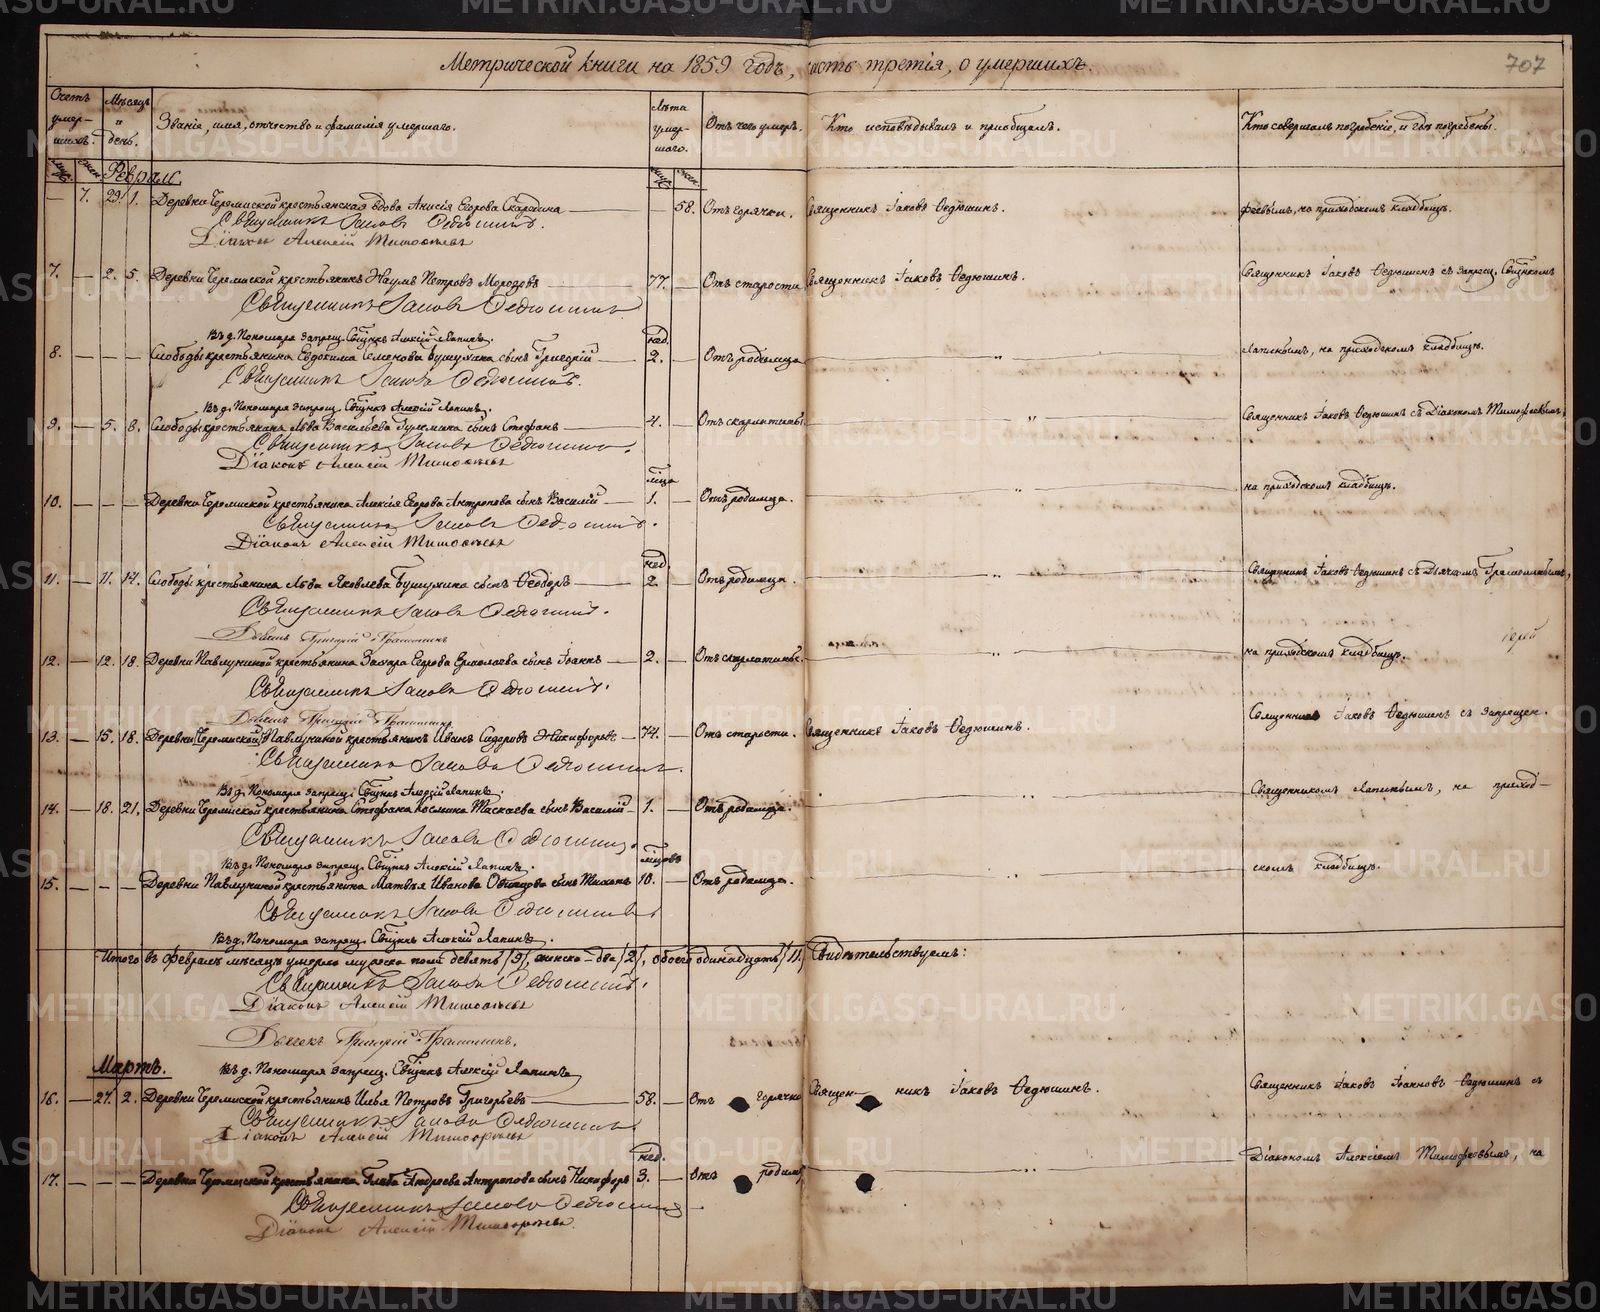 Метрической книги на 1859 годъ, часть третія, о умершихъ.
707
Счетъ умер-шихъ.
Мѣсяцъ и день.
Званіе, имя, отчество и фамилія умершаго.
Лѣта умер-шаго.
Отъ чего умеръ.
Кто исповѣдывалъ и пріобщалъ.
Кто совершалъ погребеніе, и гдѣ погребены.
Февраль.
— 7. 29. 1. Деревни Черемиской крестьянская вдова Анисія Егорова — 58. Отъ горячки. Священникъ Іаковъ Ѳедюшинъ. феевымъ, на приходскомъ кладбищѣ.
Священникъ Іаковъ Ѳедюшинъ.
Діаконъ Алексій Тимоѳеевъ
7. — 2. 5. Деревни Черемиской крестьянинъ Наумъ Петровъ Морозовъ 77. — Отъ старости Священникъ Іаковъ Ѳедюшинъ. Священникъ Іаковъ Ѳедюшинъ съ запрещ. Свщнкомъ
Священникъ Іаковъ Ѳедюшинъ
Въ д. Пономаря запрещ. Свщнкъ Алексій Лапинъ.
нед.
8. — — — Слободы крестьянина Евдокима Семенова Бушухина сынъ Григорій 2. — Отъ родимца — „ — Лапинымъ, на приходскомъ кладбищѣ.
Священникъ Іаковъ Ѳедюшинъ.
Въ д. Пономаря запрещ. Свщнкъ Алексій Лапинъ.
9. — 5. 8. Слободы крестьянина Льва Васильева сынъ Стефанъ 4. — Отъ скарлатины — „ — Священникъ Іаковъ Ѳедюшинъ съ Діакономъ Тимоѳеевымъ,
Священникъ Іаковъ Ѳедюшинъ.
Діаконъ Алексій Тимоѳеевъ
мѣсца
10. — — — Деревни Черемиской крестьянина Алексія Егорова Антропова сынъ Василій 1. — Отъ родимца. — „ — на приходскомъ кладбищѣ.
Священникъ Іаковъ Ѳедюшинъ.
Діаконъ Алексій Тимоѳеевъ
нед.
11. — 11. 14. Слободы крестьянина Льва Яковлева Бушухина сынъ Ѳеодоръ 2 — Отъ родимца. — „ — Священникъ Іаковъ Ѳедюшинъ съ Дьячкомъ
Священникъ Іаковъ Ѳедюшинъ.
Дьячекъ Григорій
12. — 12. 18. Деревни Павлушиной крестьянина Захара Егорова Ермолаева сынъ Іоаннъ 2. — Отъ скарлатины. — „ — на приходскомъ кладбищѣ.
Священникъ Іаковъ Ѳедюшинъ.
Дьячекъ Григорій
13. — 15. 18. Деревни Черемиской Павлушиной крестьянинъ Иванъ Сидоровъ Никифоровъ 74. — Отъ старости. Священникъ Іаковъ Ѳедюшинъ. Священникъ Іаковъ Ѳедюшинъ съ запрещен.
Священникъ Іаковъ Ѳедюшинъ.
Въ д. Пономаря запрещ. Свщнкъ Алексій Лапинъ.
14. — 18. 21. Деревни Черемиской крестьянина Стефана Космина Таскаева сынъ Василій 1. — Отъ родимца. — „ — Священникомъ Лапинымъ, на приход-
Священникъ Іаковъ Ѳедюшинъ.
Въ д. Пономаря запрещ. Свщнкъ Алексій Лапинъ.
мѣсцовъ
15. — — — Деревни Павлушиной крестьянина Матвѣя Иванова сынъ Тихонъ 10. — Отъ родимца. — „ — скомъ кладбищѣ.
Священникъ Іаковъ Ѳедюшинъ
Въ д. Пономаря запрещ. Свщнкъ Алексій Лапинъ.
Итого въ Февралѣ мѣсяцѣ умерло мужеска полу девять /9/, женска — два /2/, обоего одинадцать /11/ Свидѣтельствуемъ:
Священникъ Іаковъ Ѳедюшинъ.
Діаконъ Алексій Тимоѳеевъ
Дьячекъ Григорій
Въ д. Пономаря запрещ. Свщнкъ Алексій Лапинъ
Мартъ.
16. — 27. 2. Деревни Черемиской крестьянинъ Илья Петровъ Григорьевъ 58. — Отъ горячки Священникъ Іаковъ Ѳедюшинъ. Священникъ Іаковъ Іоанновъ Ѳедюшинъ съ
Священникъ Іаковъ Ѳедюшинъ
Діаконъ Алексій Тимоѳеевъ
нед.
17. — — — Деревни Черемиской крестьянина Глѣба Андреева Антропова сынъ Никифоръ 3. — Отъ родимц. — „ — Діакономъ Алексіемъ Тимоѳеевымъ, на
Священникъ Іаковъ Ѳедюшинъ
Діаконъ Алексій Тимоѳеевъ.
METRIKI.GASO-URAL.RU